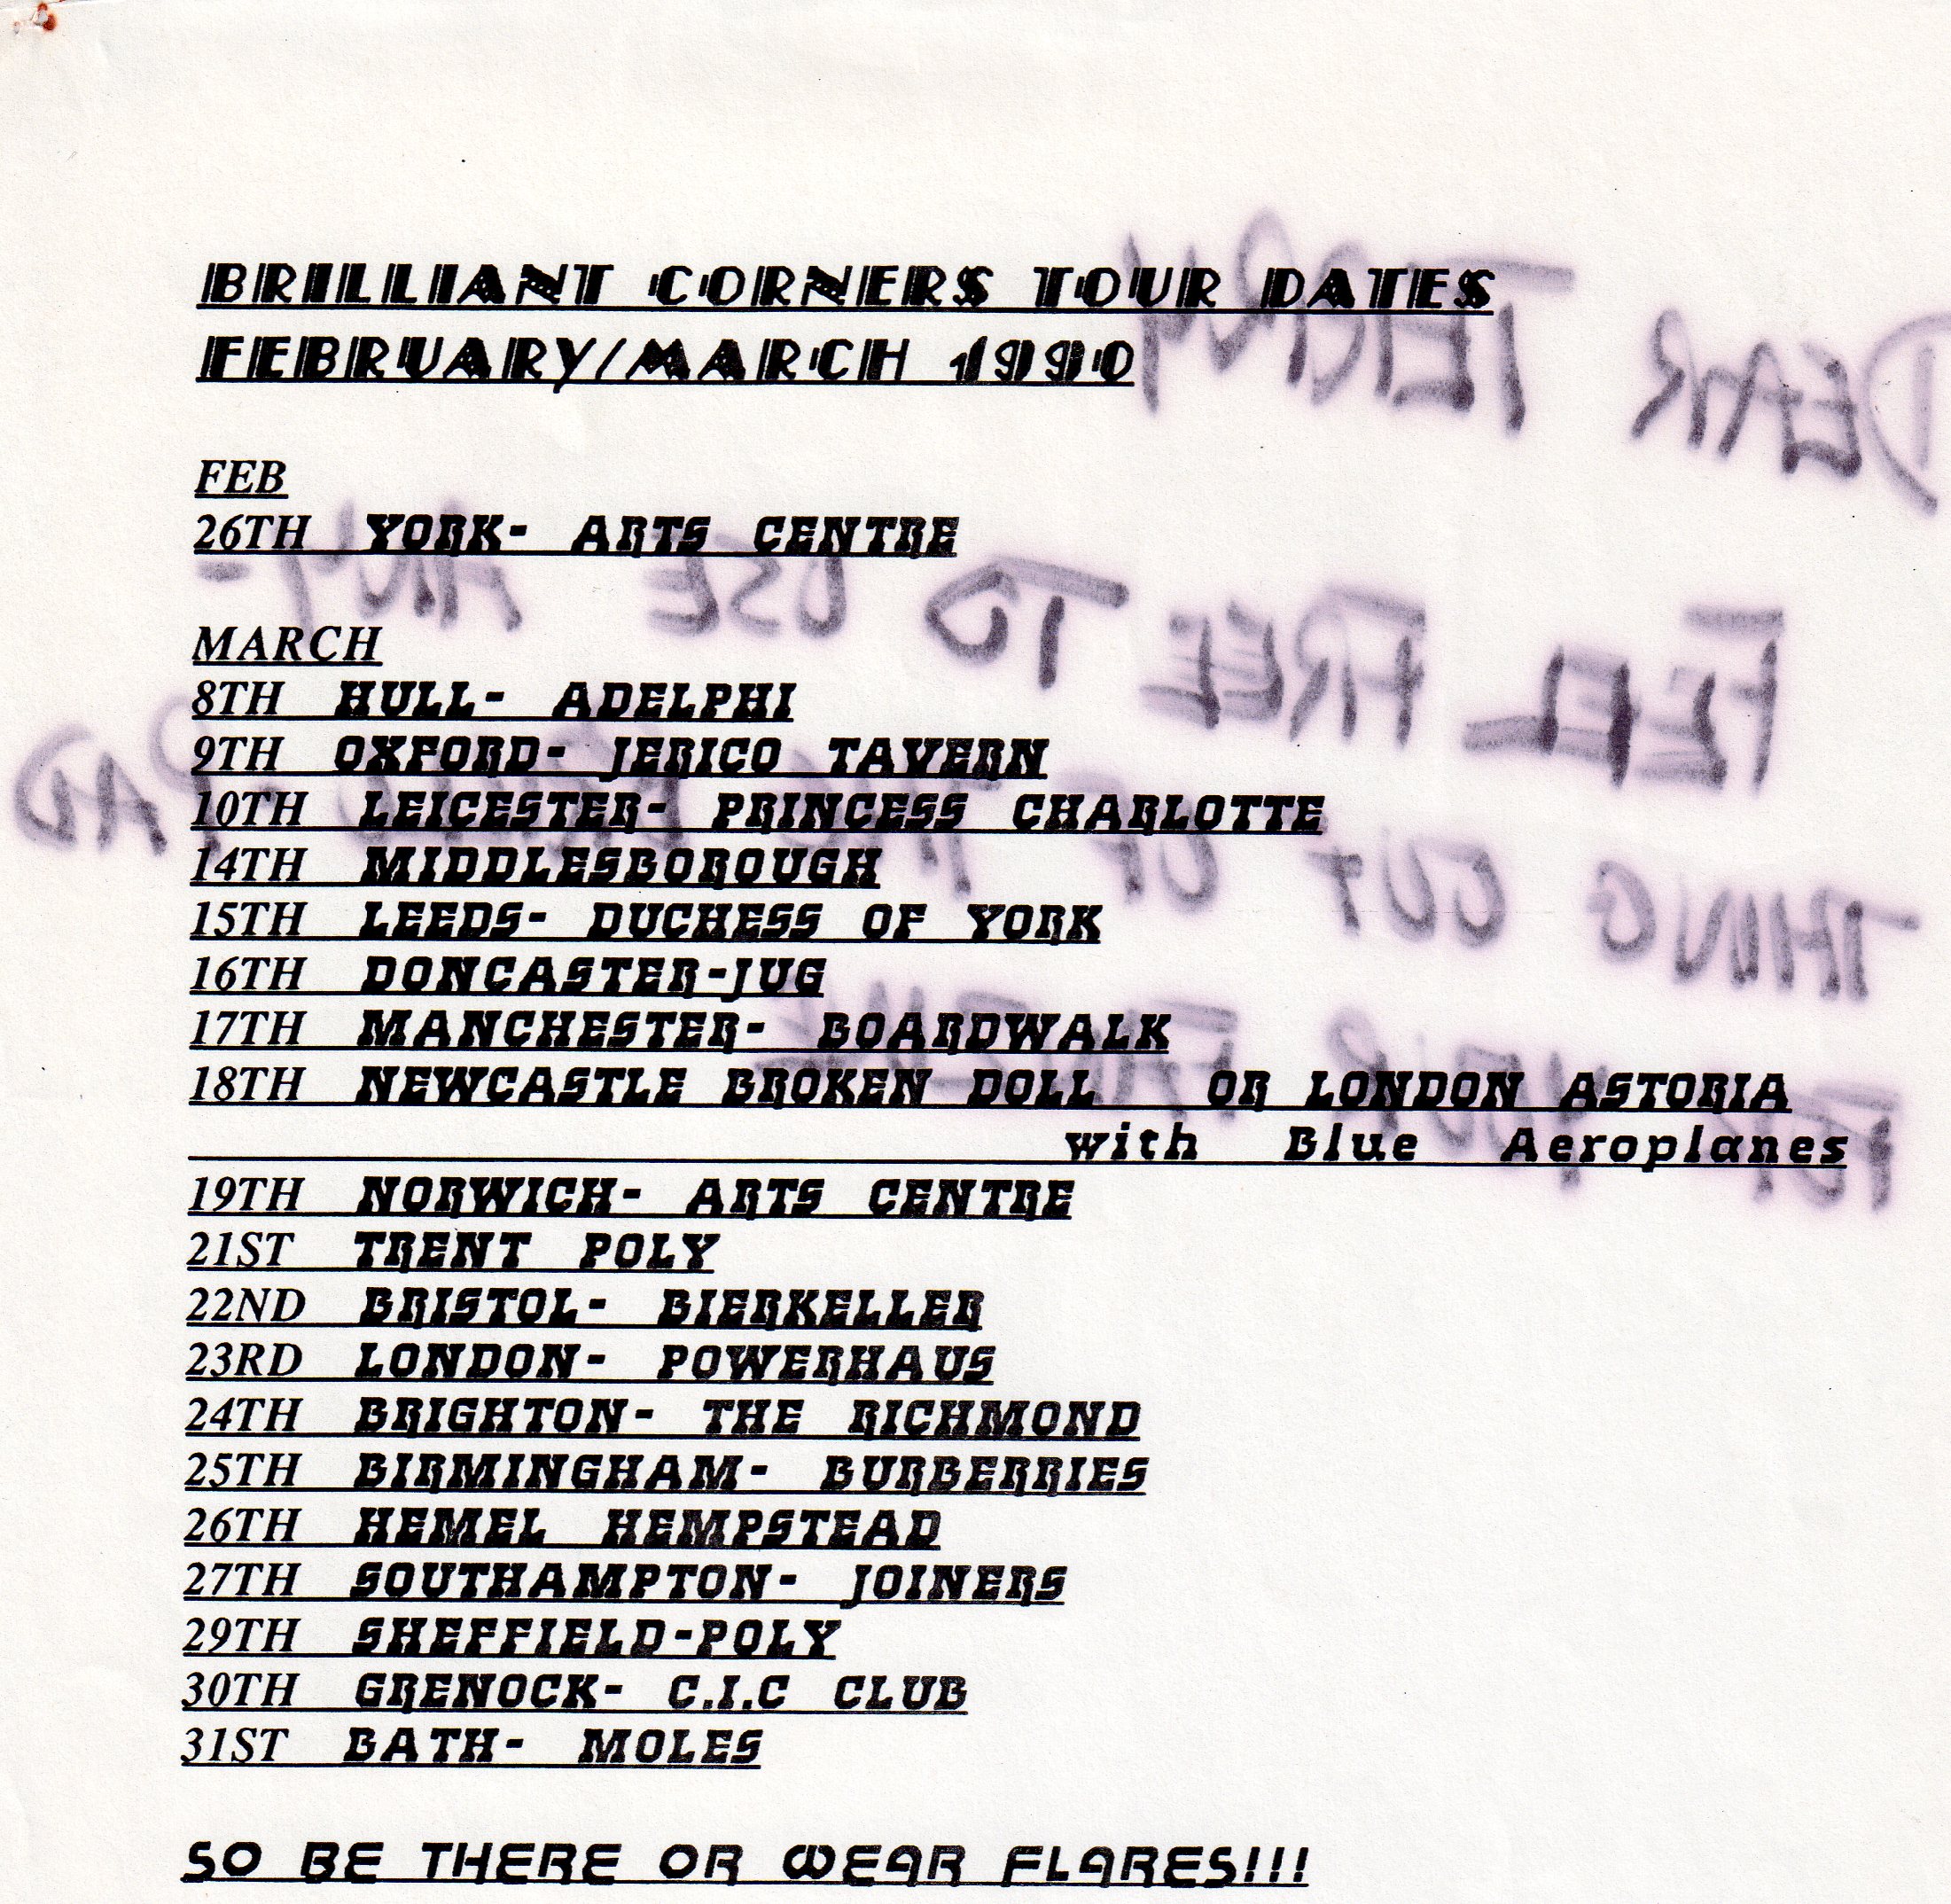 BRILLIANT CORNERS TOUR DATES
FEBRUARY/MARCH 1990
FEB
26TH YORK- ARTS CENTRE
MARCH
8TH HULL- ADELPHI
9TH OXFORD- JERICO TAVERN
10TH LEICESTER- PRINCESS CHARLOTTE
14TH MIDDLESBOROUGH
15TH LEEDS- DUCHESS OF YORK
16TH DONCASTER-JUG
17TH MANCHESTER- BOARDWALK
18TH NEWCASTLE BROKEN DOLL OR LONDON ASTORIA
with Blue Aeroplanes
19TH NORWICH- ARTS CENTRE
21ST TRENT POLY
22ND BRISTOL- BIERKELLER
23RD LONDON- POWERHAUS
24TH BRIGHTON- THE RICHMOND
25TH BIRMINGHAM- BURBERRIES
26TH HEMEL HEMPSTEAD
27TH SOUTHAMPTON- JOINERS
29TH SHEFFIELD-POLY
30TH GRENOCK- C.I.C CLUB
31ST BATH- MOLES
SO BE THERE OR WEAR FLARES!!!
DEAR TERRY
FEEL FREE TO USE ANY-
THING OUT OF
FOR YOUR